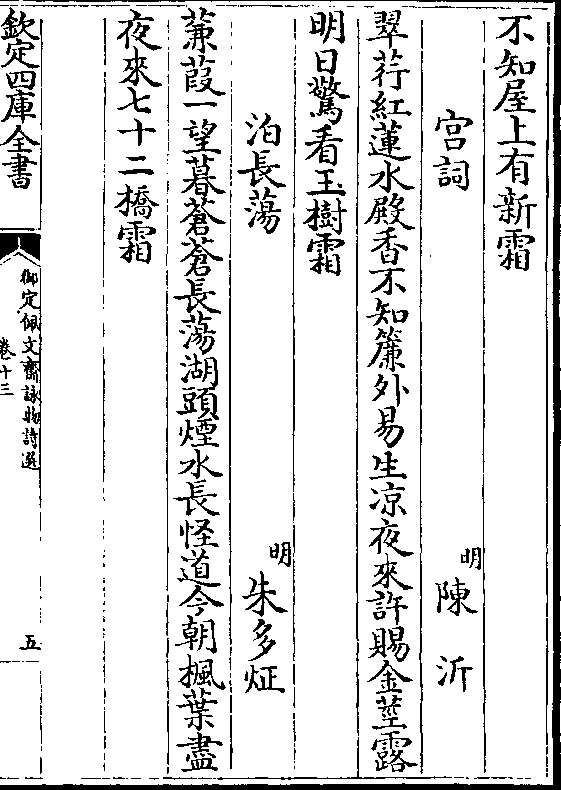 不知屋上有新霜
宫詞
明陳沂
翠荇紅蓮水殿香不知簾外易生凉夜來許賜金莖露
明日驚看玉樹霜
泊長蕩
明朱多炡
蒹葭一望暮蒼蒼長蕩湖頭煙水長怪道今朝楓葉盡
夜來七十二橋霜
欽定四庫全書
御定佩文齋詠物詩選
卷十三
五